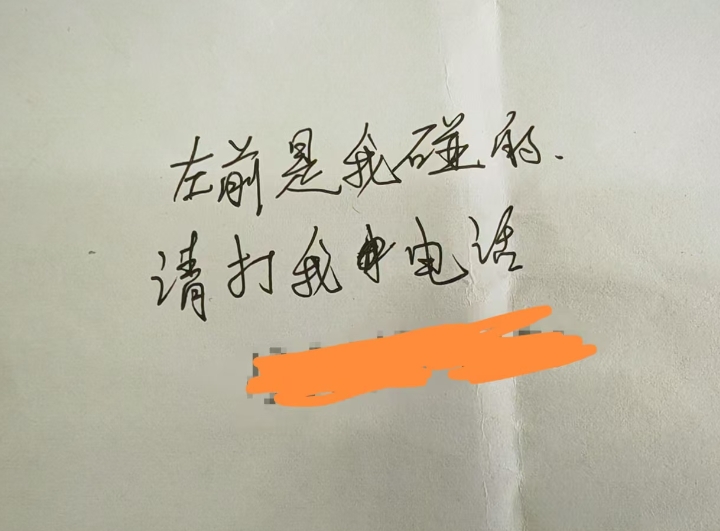 左前是我碰的.
请打我电话